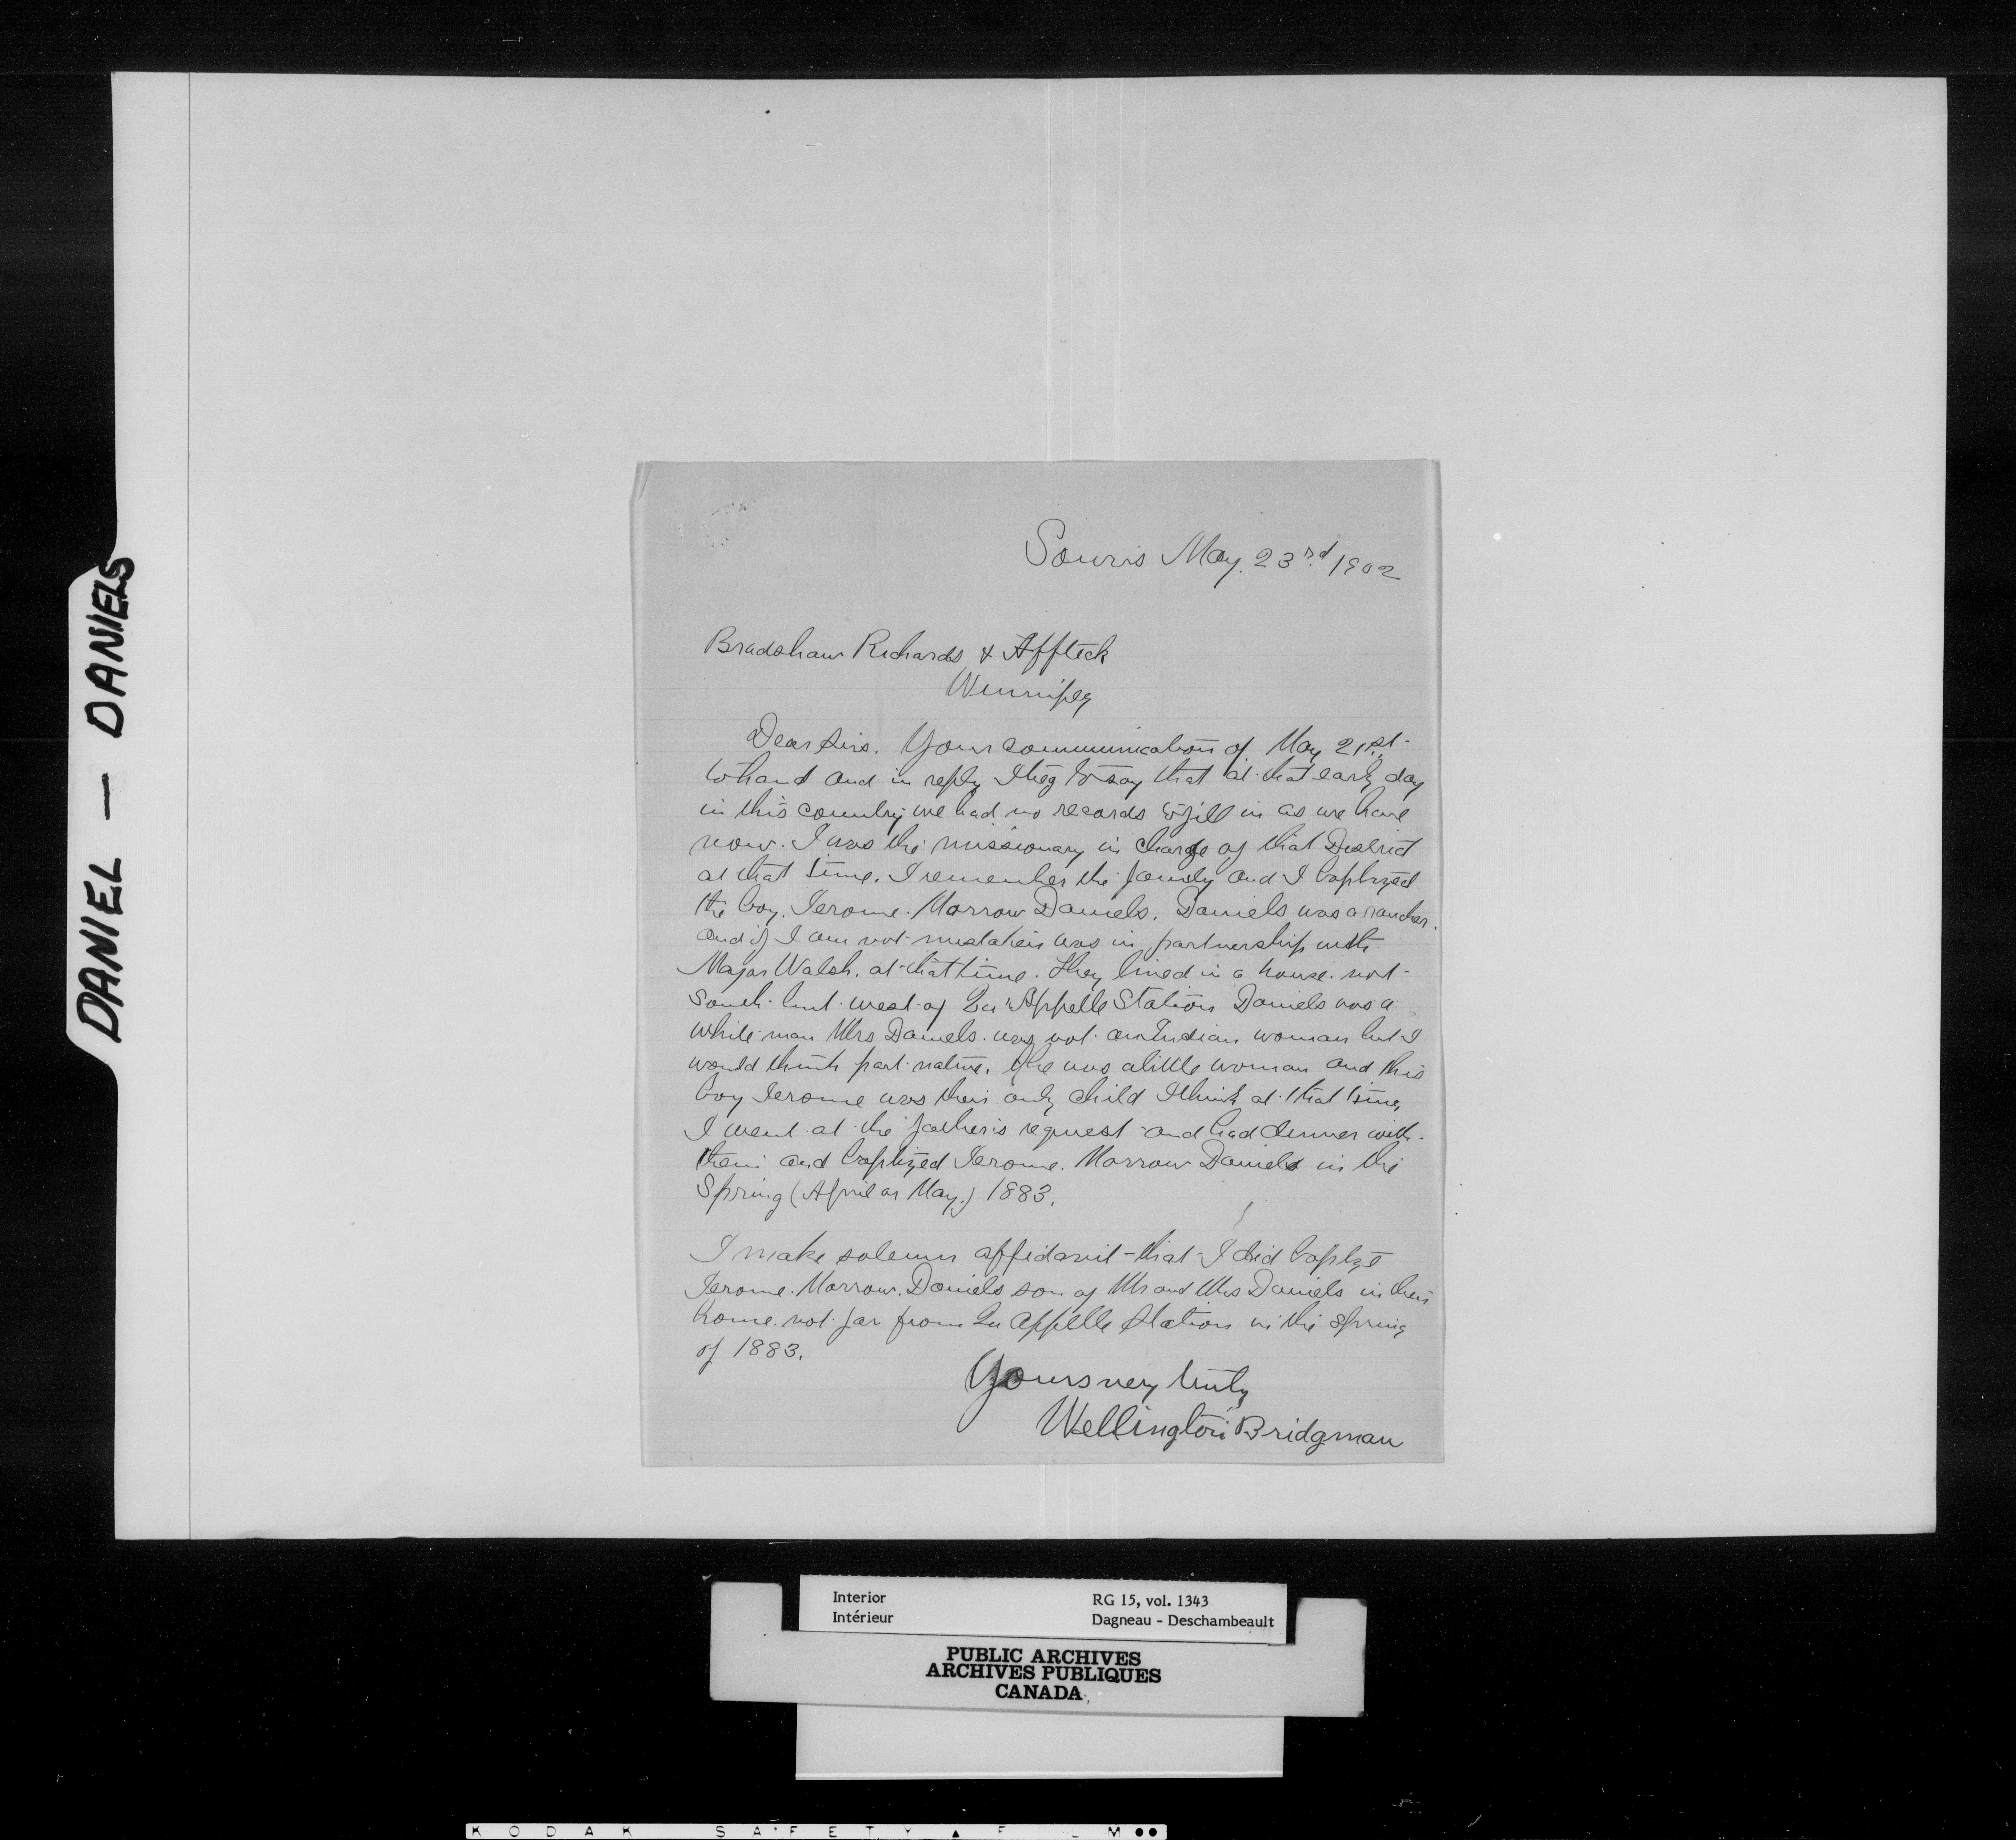 DANIEL — DANIELS
Souris May. 23rd. 1902
Bradshaw Richards & Affleck
Winnipeg
Dear Sirs. Your communication of May 21st.
to hand and in reply I beg to say that at that early day
in this country we had no records to fill in as we have
now. I was the missionary in charge of that District
at that time. I remember the family and I baptized
the boy. Jerome. Morrow Daniels. Daniels was a rancher.
and if I am not mistaken was in partnership with
Major Walsh. at that time. They lived in a house. not
South but west of Qu'Appelle Station Daniels was a
white man Mrs Daniels. was not an Indian woman but I
would think part native. She was a little woman and this
boy Jerome was their only child I think at that time,
I went at the father's request and had dinner with
them and baptized Jerome. Morrow Daniels in the
Spring (April or May.) 1883.
I make solemn affidavit that I did baptize
Jerome. Morrow. Daniels son of Mr and Mrs Daniels in their
home. not far from Qu Appelle Station in the spring
of 1883.
Yours very truly
Wellington Bridgman
Interior RG 15, vol. 1343
Intérieur Dagneau - Deschambeault
PUBLIC ARCHIVES
ARCHIVES PUBLIQUES
CANADA
KODAK SAFETY ▲ F L M ●●